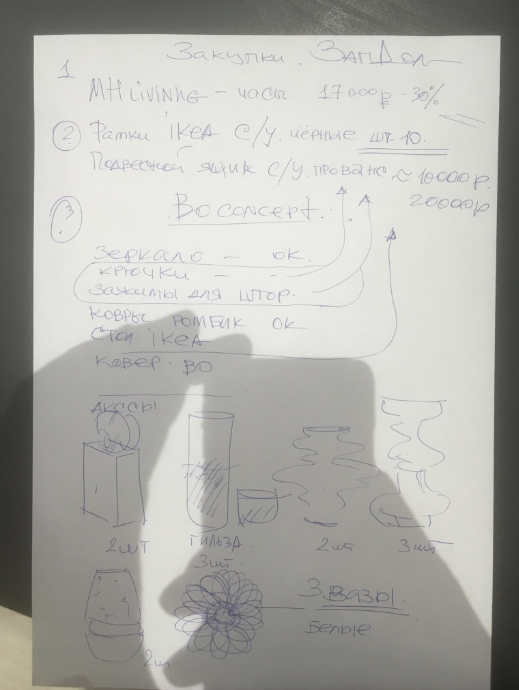 Закупки. ЗапДол
1
MHLiviNG – часы. 17000₽ - 30%
2 Рамки iKEA С/У. чёрные шт. 10.
Подвесной ящик С/У. прованс ≈ 10000 р.
20000₽
3 BoConcept.
Зеркало – ок.
крючки – -
зажимы для штор.
ковры ромбик ок
Стол iKEA
ковер. BO
АКССЫ
2шт гильза. 2шт 3шт
3шт.
3 ВАЗЫ.
Белые
2шт